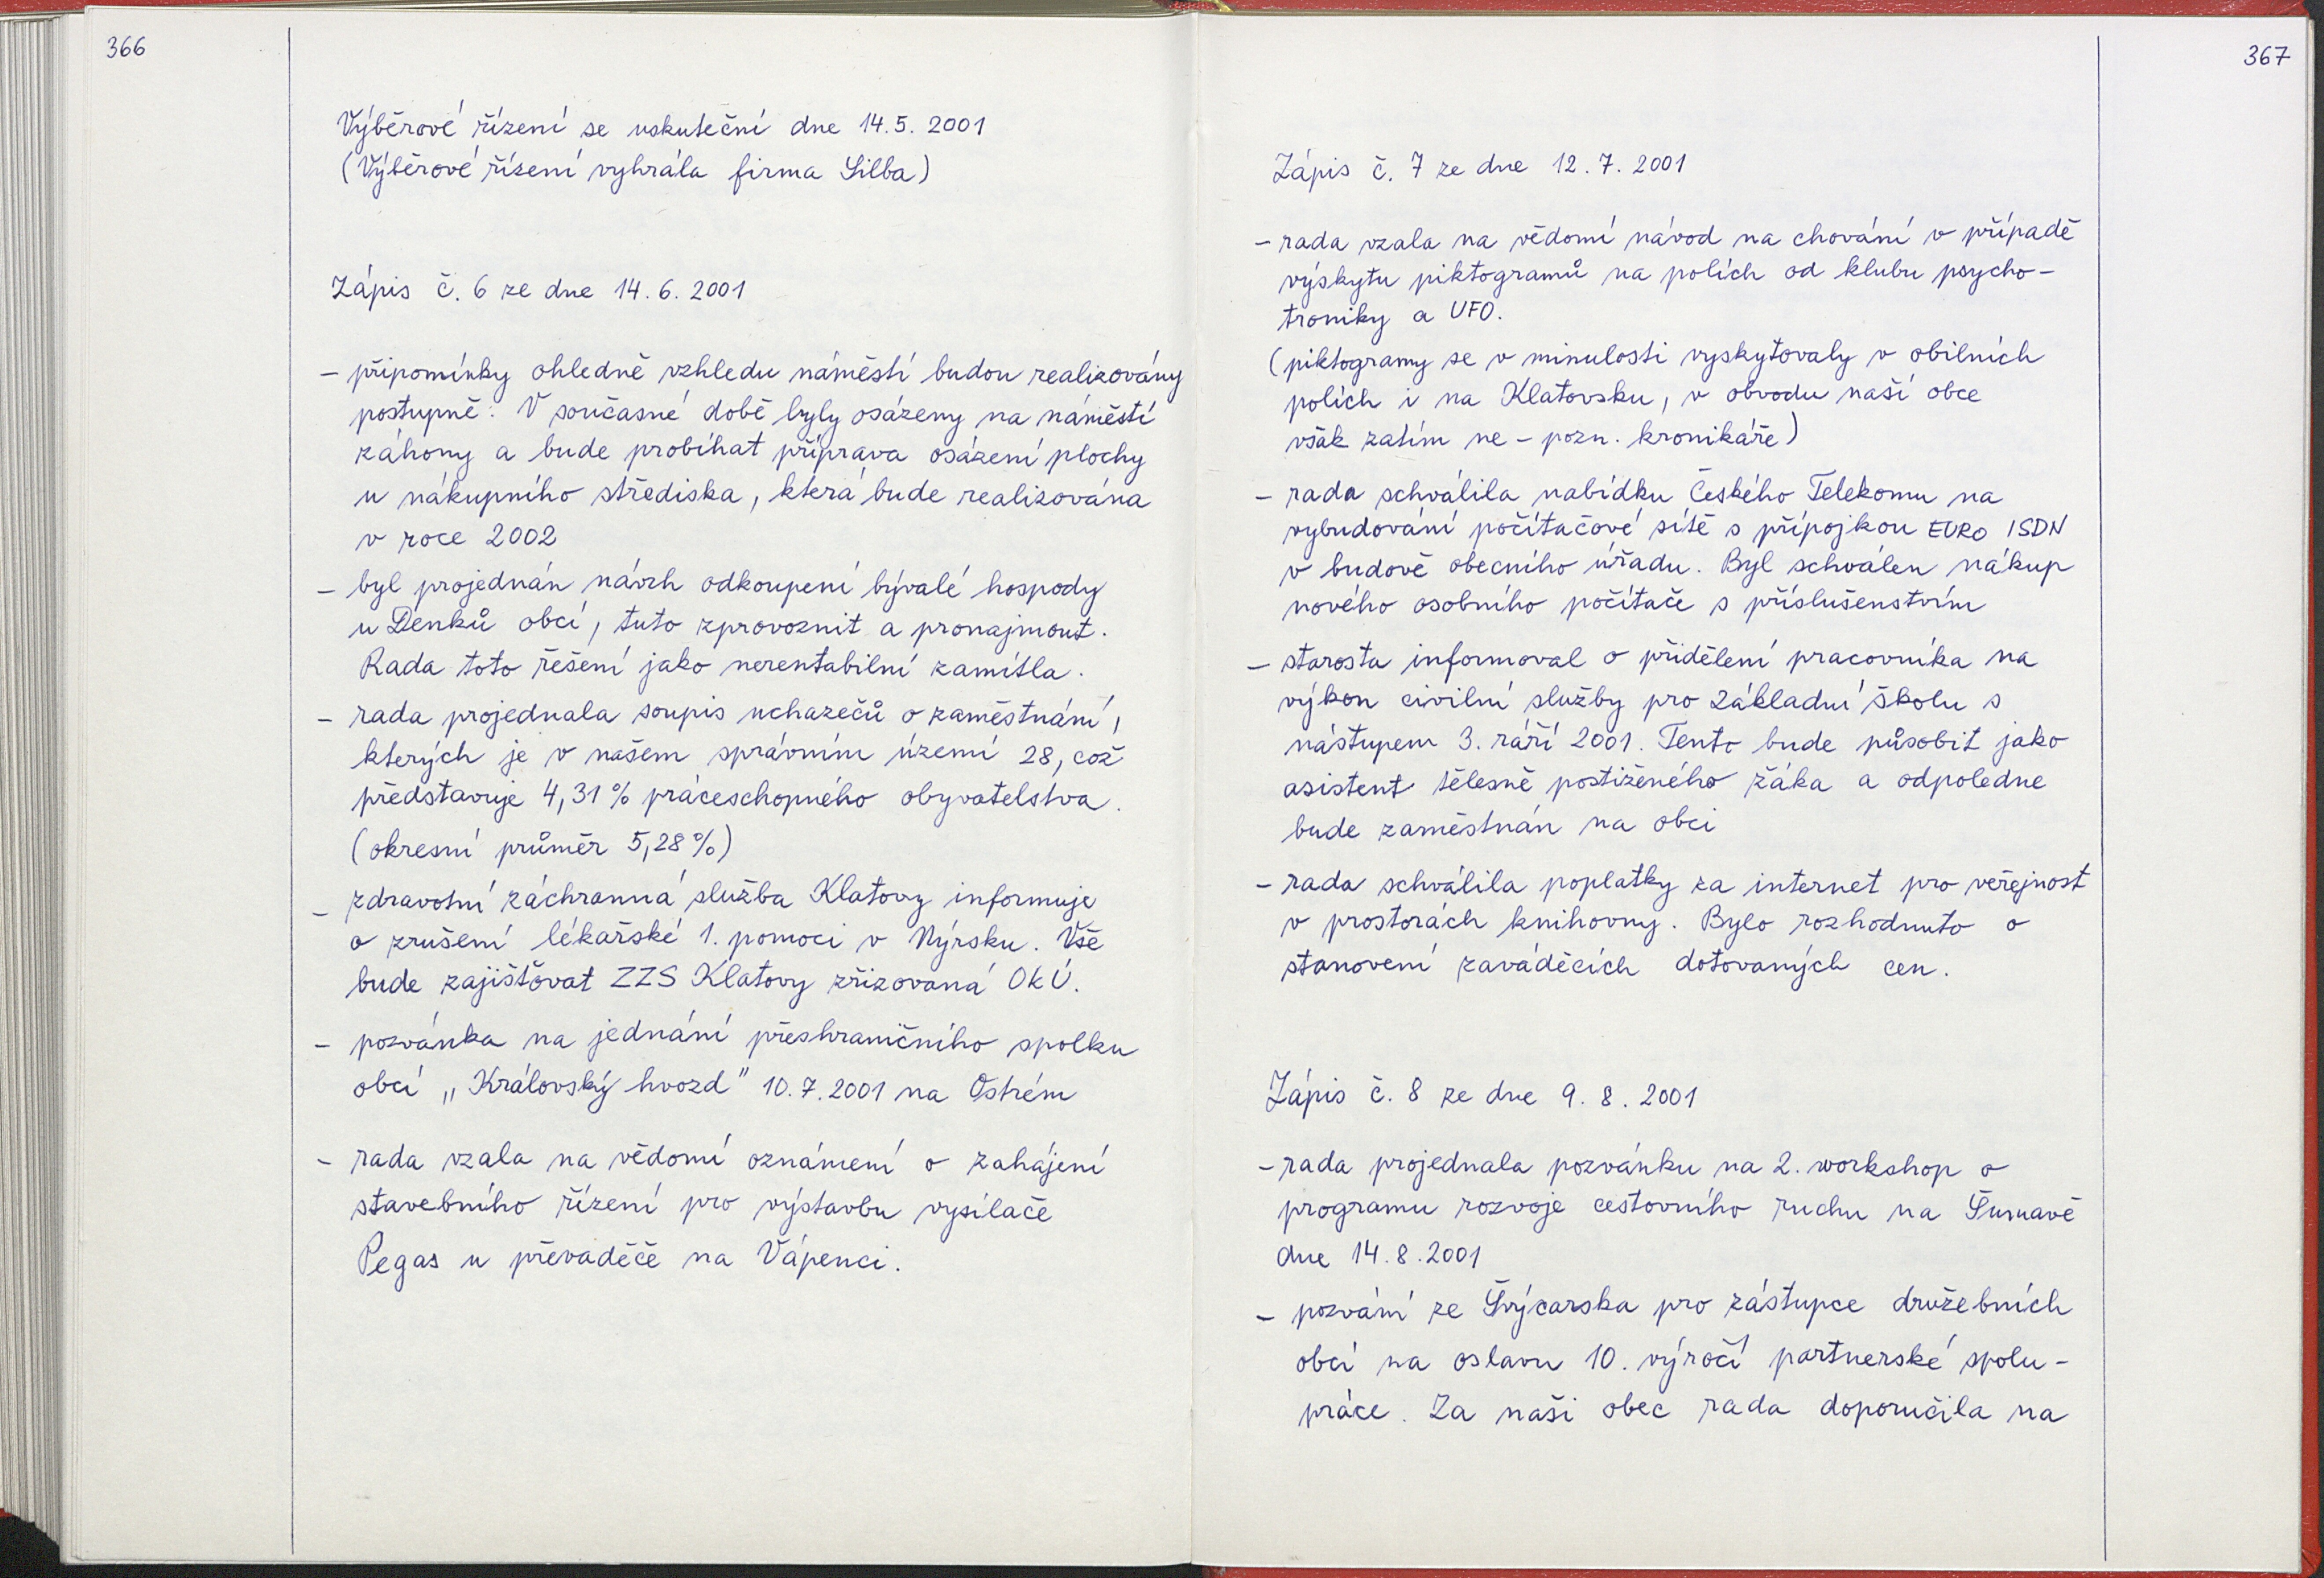 366
Výběrové řízení se uskuteční dne 14.5. 2001
(Výběrové řízení vyhrála firma Silba)
Zápis č. 6 ze dne 14.6. 2001
- připomínky ohledně vzhledu náměstí budou realizovány
postupně. V současné době byly osázeny na náměstí
záhony a bude probíhat příprava osázení plochy
u nákupního střediska, která bude realizována
v roce 2002
- byl projednán návrh odkoupení bývalé hospody
u Denků obcí, tuto zprovoznit a pronajmout.
Rada toto řešení jako nerentabilní zamítla.
- rada projednala soupis uchazečů o zaměstnání,
kterých je v našem správním území 28, což
představuje 4,31% práceschopného obyvatelstva.
(okresní průměr 5,28%)
- zdravotní záchranná služba Klatovy informuje
o zrušení lékařské 1. pomoci v Nýrsku. Vše
bude zajišťovat ZZS Klatovy zřizovaná OkÚ.
- pozvánka na jednání přeshraničního spolku
obcí „Královský hvozd" 10.7.2001 na Ostrém
- rada vzala na vědomí oznámení o zahájení
stavebního řízení pro výstavbu vysílače
Pegas u převaděče na Vápenci.
367
Zápis č. 7 ze dne 12.7. 2001
- rada vzala na vědomí návod na chování v případě
výskytu piktogramů na polích od klubu psycho-
troniky a UFO.
(piktogramy se v minulosti vyskytovaly v obilních
polích i na Klatovsku, v obvodu naší obce
však zatím ne - pozn. kronikáře)
- rada schválila nabídku Českého Telekomu na
vybudování počítačové sítě s přípojkou EURO ISDN
v budově obecního úřadu. Byl schválen nákup
nového osobního počítače s příslušenstvím
- starosta informoval o přidělení pracovníka na
výkon civilní služby pro Základní školu s
nástupem 3. září 2001. Tento bude působit jako
asistent tělesně postiženého žáka a odpoledne
bude zaměstnán na obci
- rada schválila poplatky za internet pro veřejnost
v prostorách knihovny. Bylo rozhodnuto o
stanovení zaváděcích dotovaných cen.
Zápis č. 8 ze dne 9. 8. 2001
- rada projednala pozvánku na 2. workshop o
programu rozvoje cestovního ruchu na Šumavě
dne 14.8.2001
- pozvání ze Švýcarska pro zástupce družebních
obcí na oslavu 10. výročí partnerské spolu-
práce. Za naši obec rada doporučila na